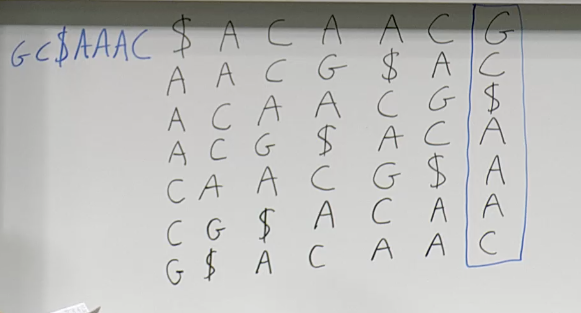 GC$AAAC
$ A C A A C G
A A C G $ A C
A C A A C G $
A C G $ A C A
C A A C G $ A
C G $ A C A A
G $ A C A A C